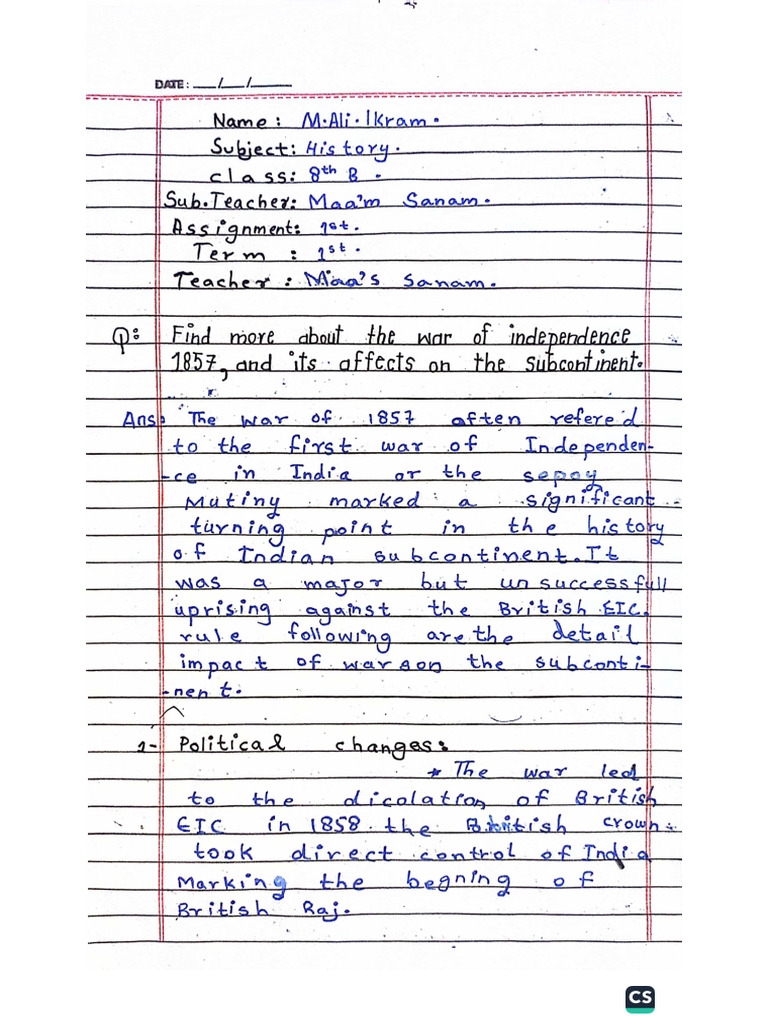 DATE: __/__/____
Name: M.Ali.Ikram.
Subject: History.
class: 8th B.
Sub.Teacher: Maa'm Sanam.
Assignment: 1st.
Term : 1st.
Teacher : Maa's Sanam.
Q: Find more about the war of independence
1857, and its affects on the subcontinent.
Ans: The war of 1857 often refered
to the first war of Independen-
-ce in India or the sepoy
Mutiny marked a significant
turning point in the history
of Indian subcontinent. It
was a major but unsuccessfull
uprising against the British EIC.
rule following are the detail
impact of war son the subconti-
-nent.
1- Political changes:
* The war led
to the dicolation of British
EIC in 1858. the British crown
took direct control of India
Marking the begning of
British Raj.
CS